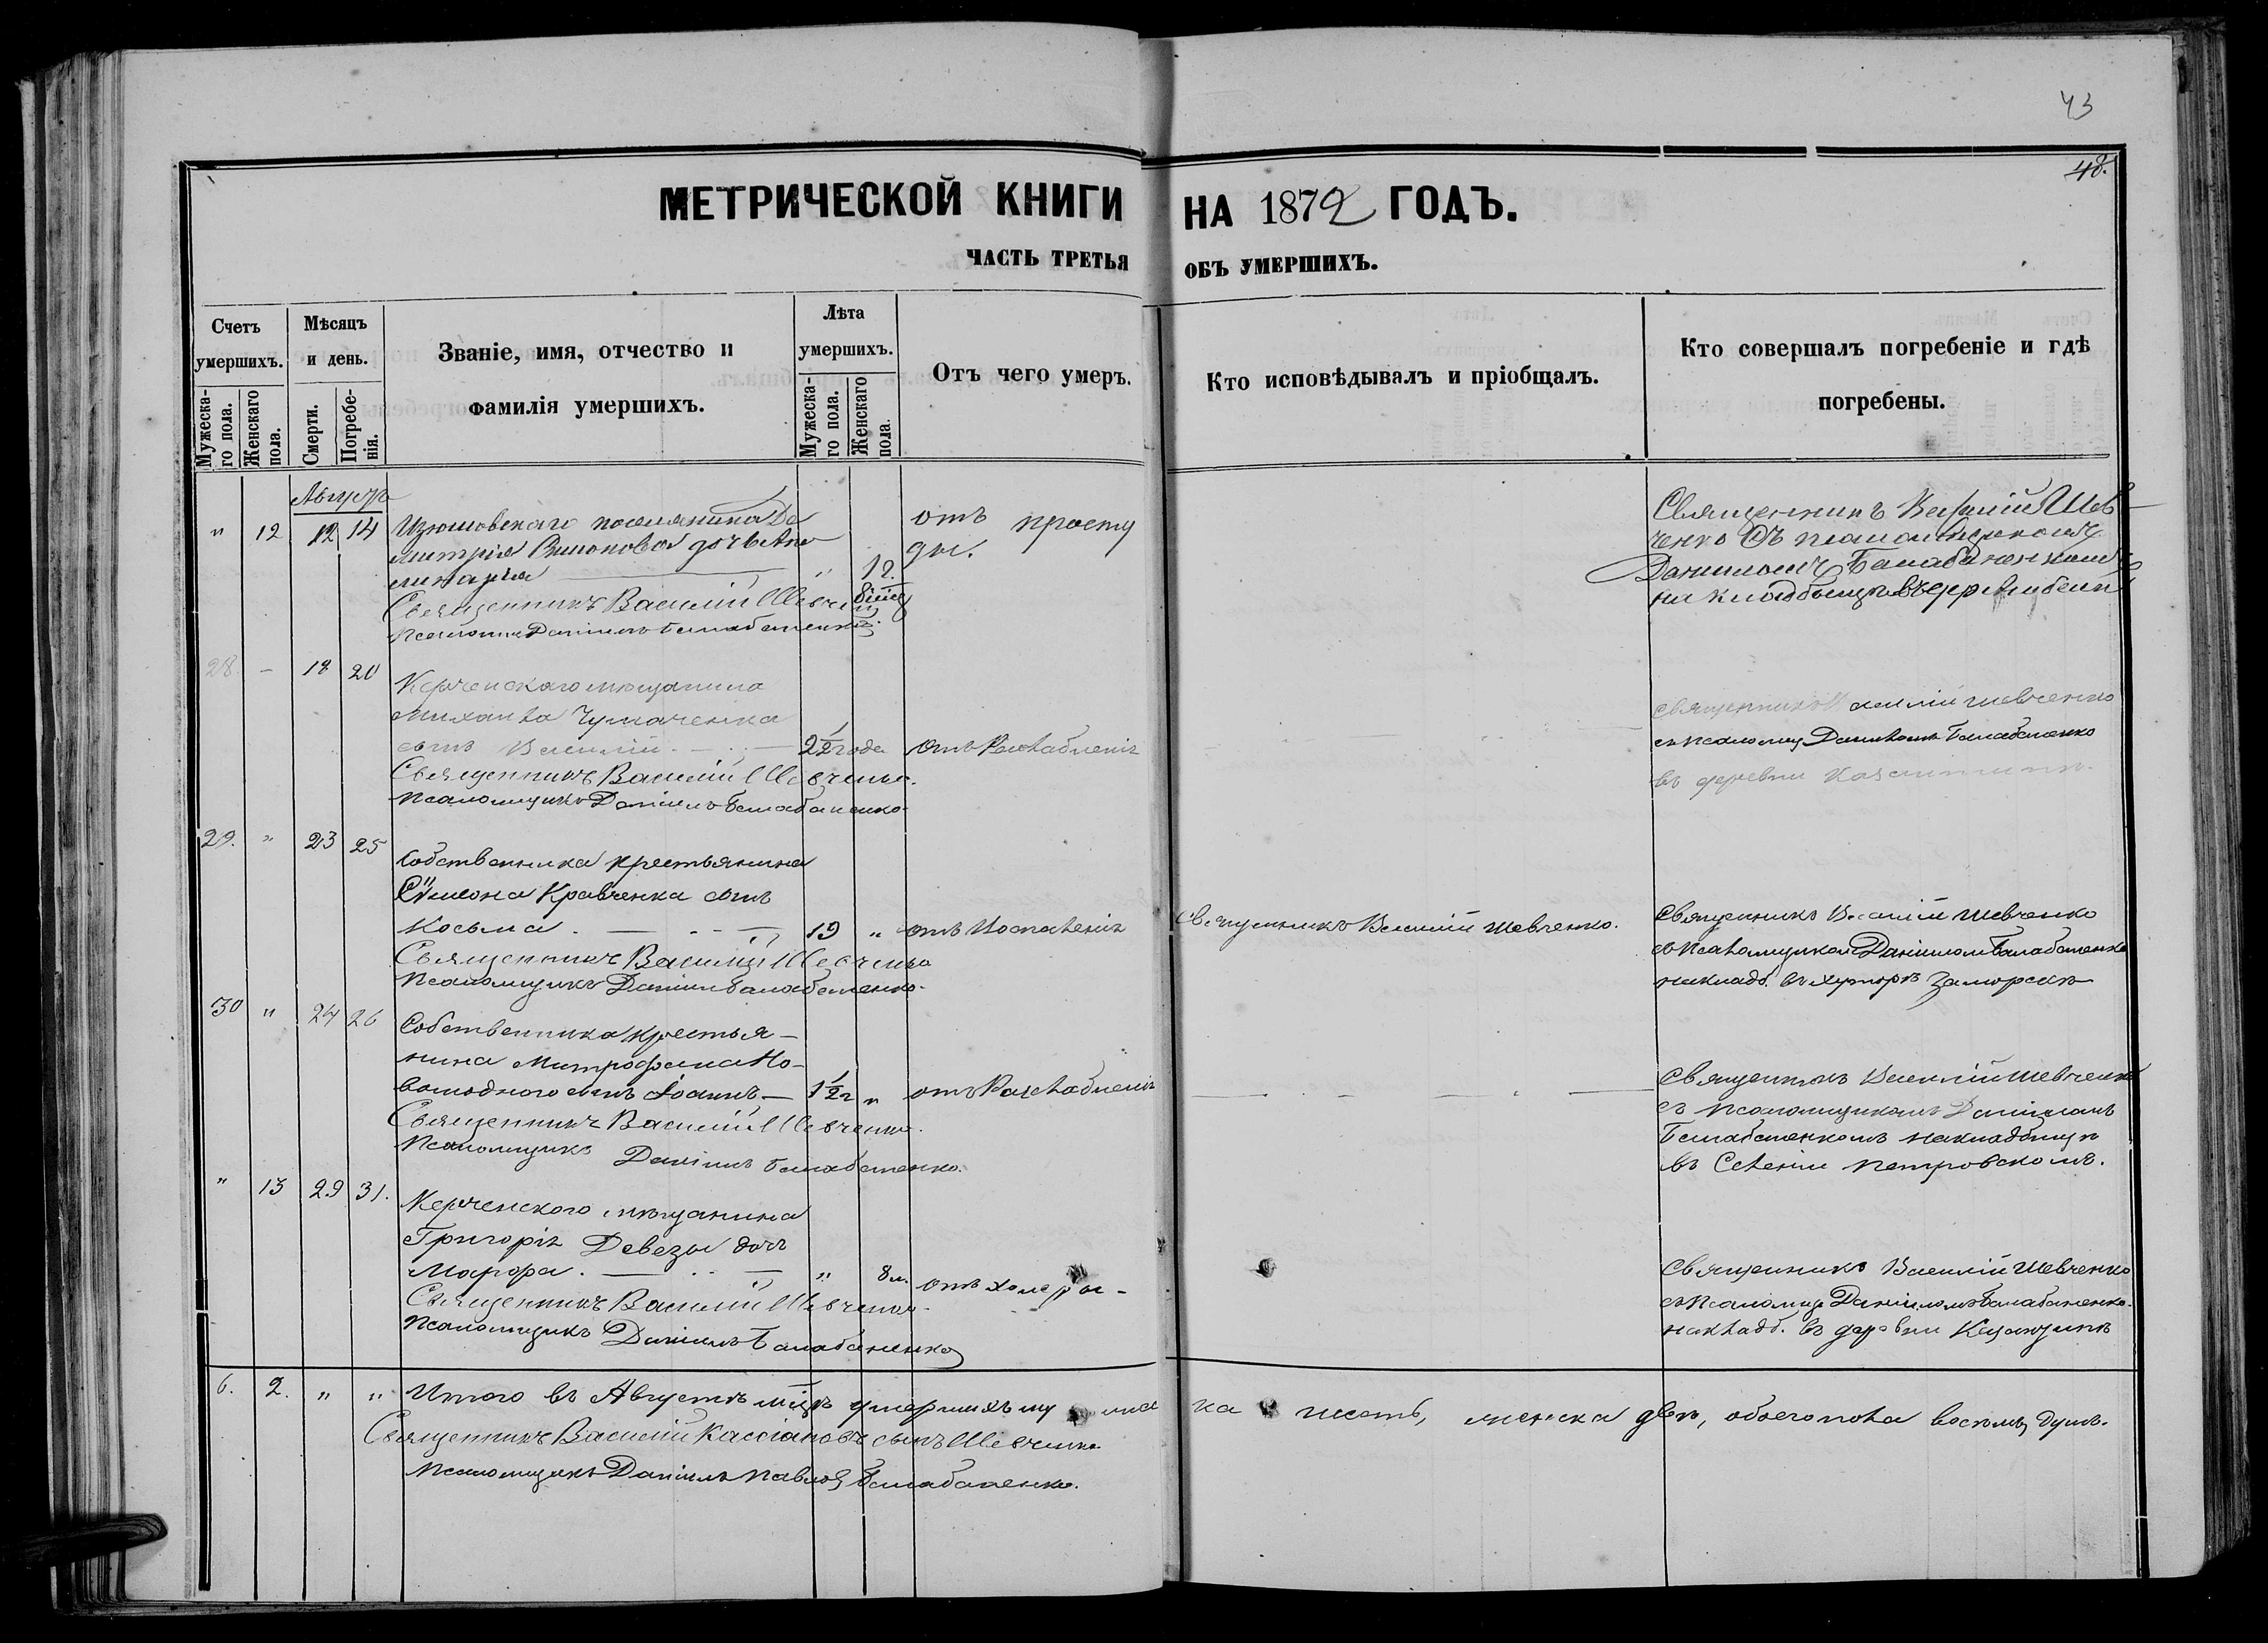 43
48.
МЕТРИЧЕСКОЙ КНИГИ НА 1872 ГОДЪ.
ЧАСТЬ ТРЕТЬЯ ОБЪ УМЕРШИХЪ.
Счетъ умершихъ.
Мужескаго пола.
Женскаго пола.
Мѣсяцъ и день.
Смерти.
Погребенія.
Званіе, имя, отчество и фамилія умершихъ.
Лѣта умершихъ.
Мужескаго пола.
Женскаго пола.
Отъ чего умеръ.
Кто исповѣдывалъ и пріобщалъ.
Кто совершалъ погребеніе и гдѣ погребены.
Августъ
" 12 12 14
Изюмовскаго поселянина Ди
митрія дочь Апо
линарія " 12.
Священникъ Василій Шевченко
Псаломщ Даніилъ Балабаненко
отъ просту
ды.
Священникъ Василій Шев
ченко съ псаломщикомъ
Даниломъ Балабаненкомъ
на кладбищѣ въ
28 - 18 20
Керченскаго мѣщанина
Михаила Чумаченка
сынъ Василій. 2 1/2 года
отъ Разслабленія
Священникъ Василій Шевченко.
Псаломщикъ Даніилъ Балабаненко
Священникъ Василій Шевченко
съ псаломщ Даніиломъ Балабаненко
въ деревни
29. " 23 25
Собственника крестьянина
Сѵмеона Кравченка сынъ
Косьма. 19 "
отъ Воспаленія
Священникъ Василій Шевченко.
Священникъ Василій Шевченко
Псаломщикъ Даніилъ Балабаненко.
Священникъ Василій Шевченко
съ Псаломщикомъ Даніиломъ Балабаненко
накладб. въ хуторѣ Заморскѣ
30 " 24 26
Собственника крестья-
нина Митрофана Но-
вомодного сынъ Іоаннъ - 1 1/2 г "
отъ Разслабленія
Священникъ Василій Шевченко.
Псаломщикъ Даніилъ Балабаненко.
Священникъ Василій Шевченко
съ псаломщикомъ Даніиломъ
Балабаненкомъ накладбищѣ
въ Селеніи Петровскомъ.
" 13 29 31.
Керченскаго мѣщанина
Григорія Девезы дочь
Марфа. " 8 м.
отъ холеры -
Священникъ Василій Шевченко.
Псаломщикъ Даніилъ Балабаненко
Священникъ Василій Шевченко
съ Псаломщ Даніиломъ Балабаненко.
накладб. въ деревни
6. 2. " " Итого въ Августѣ мцѣ умершихъ му ка шесть, женска двѣ, обоего пола восемь душъ.
Священникъ Василій Кассіановъ сынъ Шевченко
Псаломщикъ Даніилъ Павловъ Балабаненко.